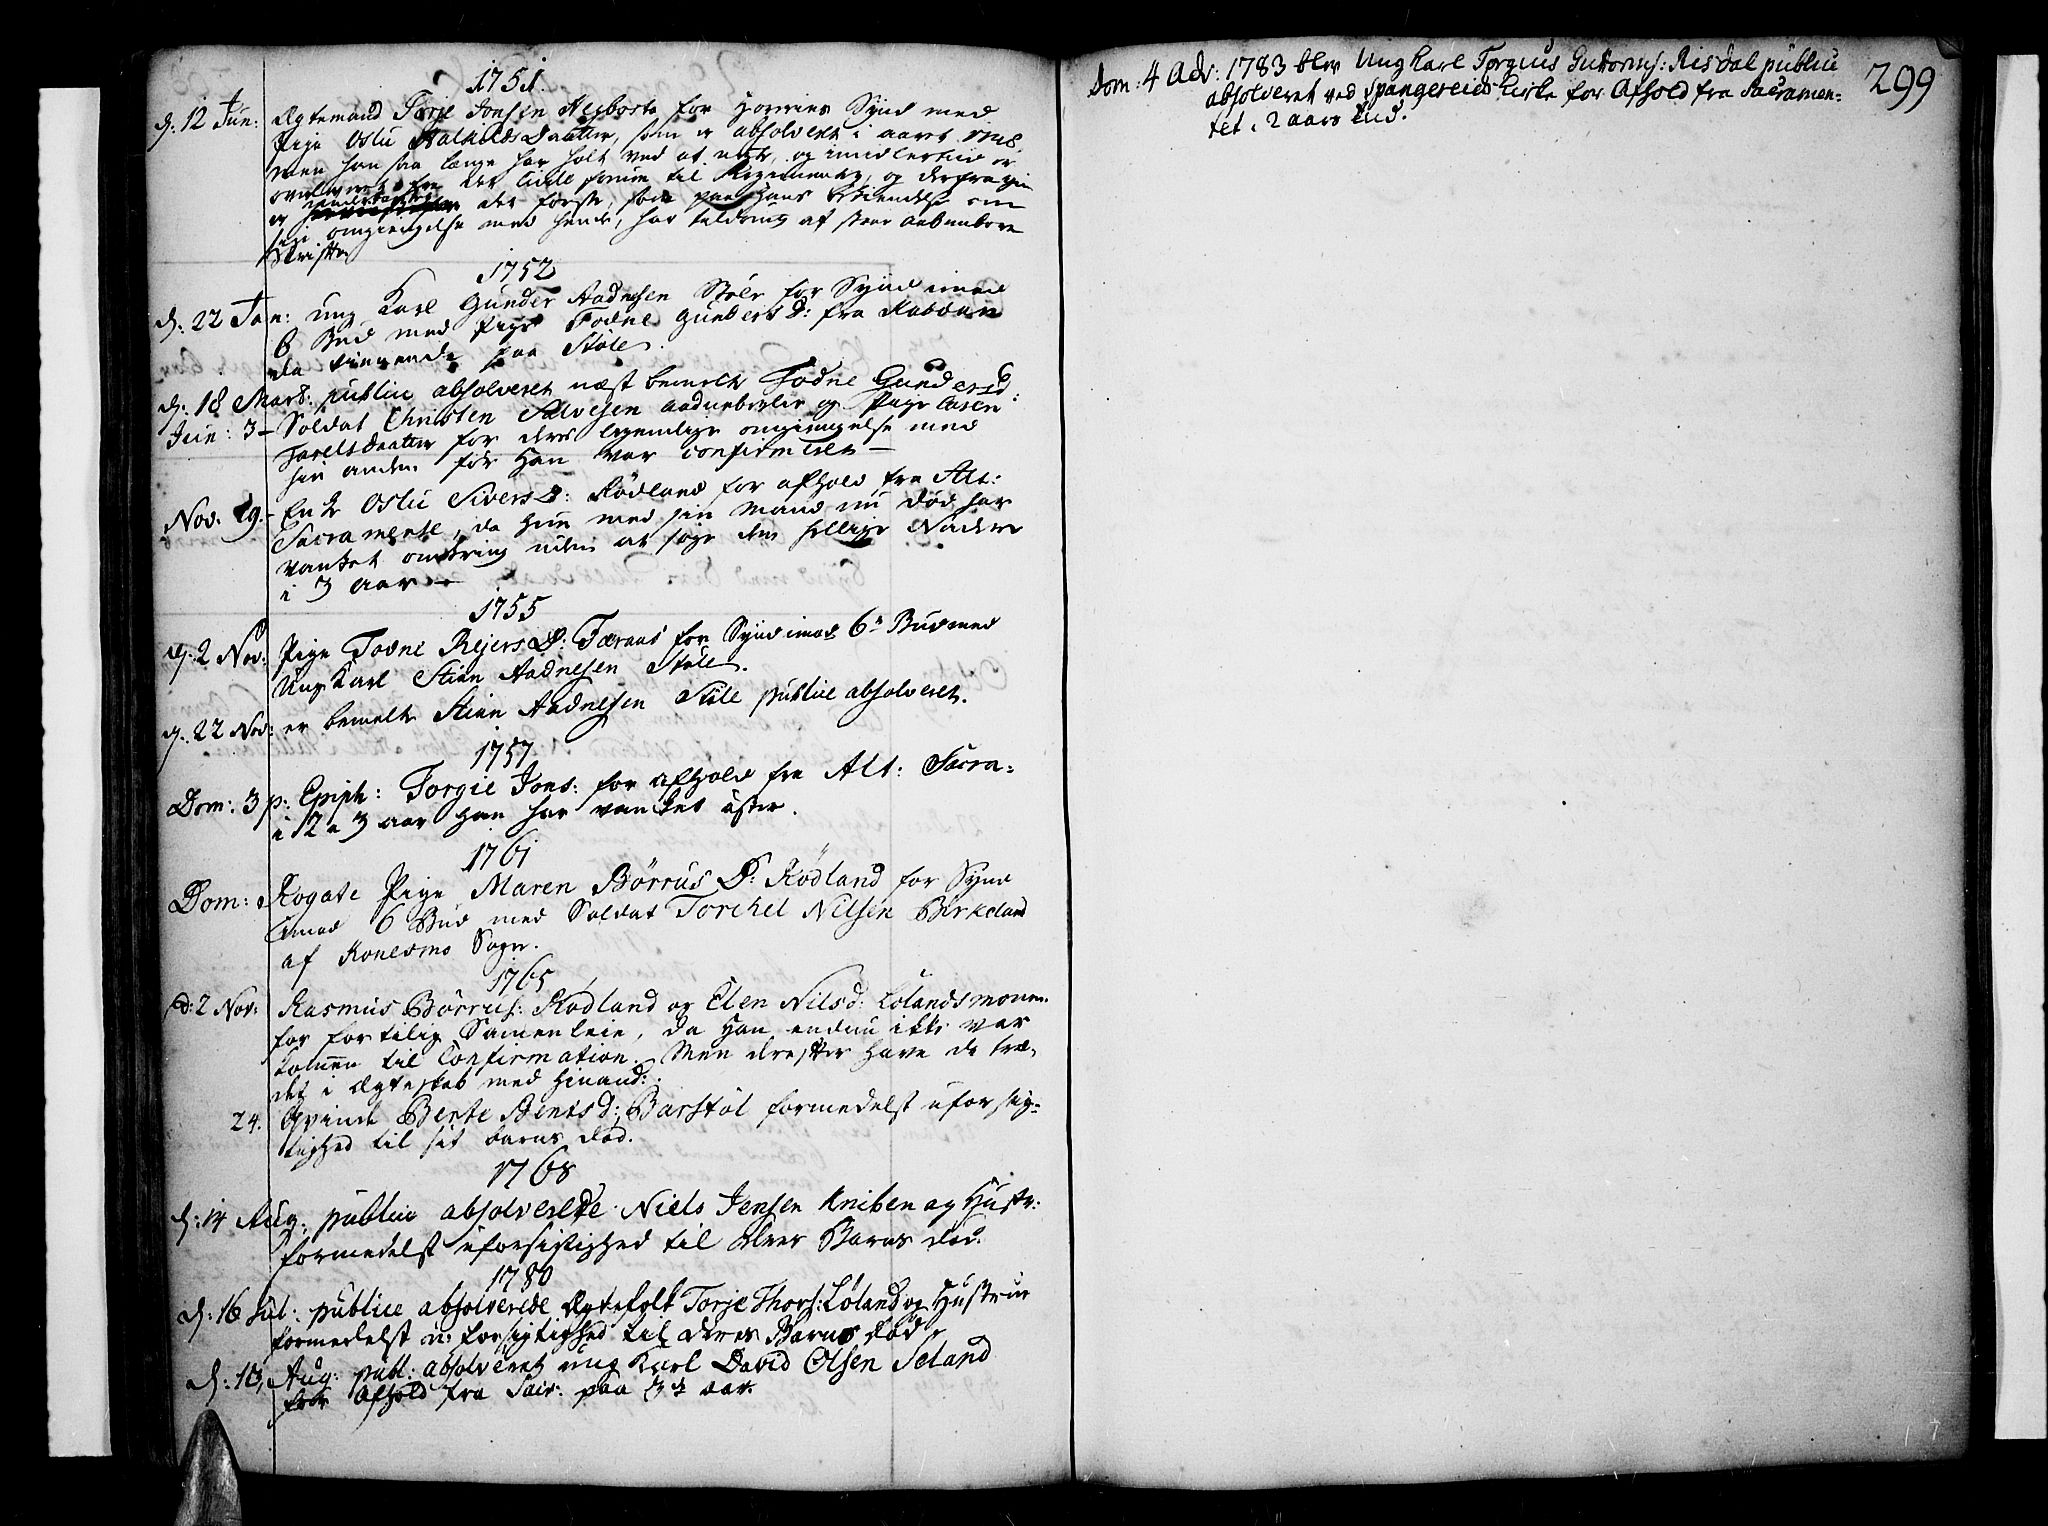 1751.
d: 12 Jun: Ægtemand Torje Jonsen for Horeries Synd med
Pige Oslu Daatter, som er absolveret i aaret
men han saa længe har holt ved at negte, og imidlertiid er
fra det Civile forum til Regimentet, og derfra
og det første, som paa Hans bekiendelse om
omgiengelse med hende, har af
Skrifte
1752
d: 22 Jan: ung Karl Gunder Aadnesen Støle for Synd imod
6 Bud med Pige Todne Gunders D: fra
da tienende paa Støle.
d: 18 Mart: publice absolveret næst bemelte Todne Gundersd:
Jun: 3 - Soldat Christen Salvesen og Pige
Tarelsdaatter for deres legemlige omgiengelse med
hin anden før Han var confirmeret -
Nov. 19. - Enke Oslu Sivers D: Rødland for afhold fra Alt:
Sacramente, da Hun med sin Mand nu død har
vanket omkring uden at søge den hellige Nadere
i 3 aar -
1755
d: 2 Nov: Pige Todne Rejers D: Færaas for Synd imod 6te Bud med
Ung Karl Stien Aadnesen Støle.
d: 22 Nov: er bemelte Stien Aadnesen Støle publice absolveret.
1757
Dom: 3 p: Epiph: Torgie Jons: for afhold fra Alt: Sacra=
i 2 a 3 aar han har vanket
1761
Dom: Rogate Pige Maren Børrus D: Rødland for Synd
imod 6 Bud med Soldat Torchel Nilsen Birkeland
af Konesmo Sogn.
1765
d: 2 Nov: Rasmus Børrus: Rødland og Elen Nilsd: Lølandsmonen
for fortilig Samenleie, da Han endnu ikke var
kommen til Confirmation. Men derefter have de træ=
det i Ægteskab med Hinand:
24. Qvinde Berte Bentsd: Barstøl formedelst uforsig=
tighed til sit barns død.
1768
d: 14 Aug: publice absolverede Niels Jensen Kniben og Hustr:
formedelst uforsigtighed til deres Barns død.
1780
d: 16 Jul: publice absolverede Ægtefolk Torje Thors: Løland og Hustrue
formedelst u: forsigtighed til deres Barns død
d: 13, Aug: publ: absolveret ung Karl David Olsen Seland
for Afhold fra Sacr: paa 3de aar.
Dom: 4 Adv: 1783 blev Ung Karl Torgius Guttorms: Risdal publice
absolveret ved Spangereids Kirke for Afhold fra Sacramen=
tet i 2 aars tid.
299